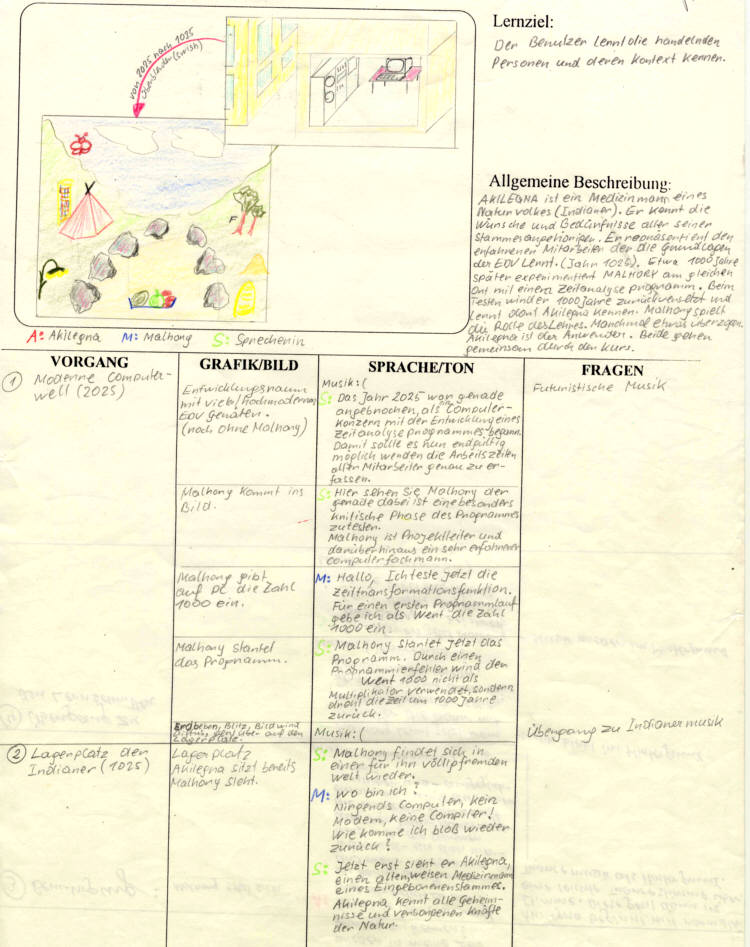 Lernziel:
Der Benutzer lernt die handelnden
Personen und deren Kontext kennen.
von 2025 nach 1025
(swish)
Allgemeine Beschreibung:
AKILEGNA ist ein Medizinmann eines
Naturvolkes (Indianer). Er kennt die
Wünsche und Bedürfnisse aller seiner
Stammesangehörigen. Er repräsentiert den
erfahrenen Mitarbeiter der die Grundlagen
der EDV lernt. (Jahr 1025). Etwa 1000 Jahre
später experimentiert MALHORY am gleichen
Ort mit einem Zeitanalyse programm. Beim
Testen wird er 1000 Jahre zurückversetzt und
lernt dort Akilegna kennen. Malhory spielt
die Rolle des Lehrers. Manchmal etwas überzogen.
Akilegna ist der Anwender. Beide gehen
gemeinsam durch den Kurs.
A: Akilegna M: Malhory S: Sprecherin
VORGANG GRAFIK/BILD SPRACHE/TON FRAGEN
① Moderne Computer-
welt (2025)
Entwicklungsraum
mit viele, hochmodernen
EDV Geräten.
(noch ohne Malhory)
Musik: (
S: Das Jahr 2025 war gerade
angebrochen, als ein Computer-
Konzern mit der Entwicklung eines
Zeitanalyse programmes begann.
Damit sollte es nun endgültig
möglich werden die Arbeitszeiten
aller Mitarbeiter genau zu er-
fassen.
Futuristische Musik
Malhory kommt ins
Bild.
S: Hier sehen Sie Malhory der
gerade dabei ist eine besonders
kritische Phase des Programmes
zu testen.
Malhory ist Projektleiter und
darüberhinaus ein sehr erfahrener
computerfachmann.
Malhory gibt
auf PC die Zahl
1000 ein.
M: Hallo, Ich teste jetzt die
Zeittransformationsfunktion.
Für einen ersten Programmlauf
gebe ich als Wert die Zahl
1000 ein
Malhory startet
das Programm.
S: Malhory startet jetzt das
Programm. Durch einen
Programmierfehler wird der
Wert 1000 nicht als
Multiplikator verwendet, sondern
dreht die Zeit um 1000 Jahre
zurück.
Erdbeben, Blitz, Bild wird
Musik: (
Übergang zu Indianermusik
② Lagerplatz der
Indianer (1025)
Lagerplatz
Akilegna sitzt bereits
Malhory steht.
S: Malhory findet sich in
einer für ihn völlig fremden
Welt wieder.
M: Wo bin ich?
Nirgends Computer, kein
Modem, keine Compiler!
Wie komme ich bloß wieder
zurück?
S: Jetzt erst sieht er Akilegna,
einen alten, weisen Medizinmann
eines Eingeborenenstammes.
Akilegna kennt alle Geheim-
nisse und verborgenen Kräfte
der Natur.